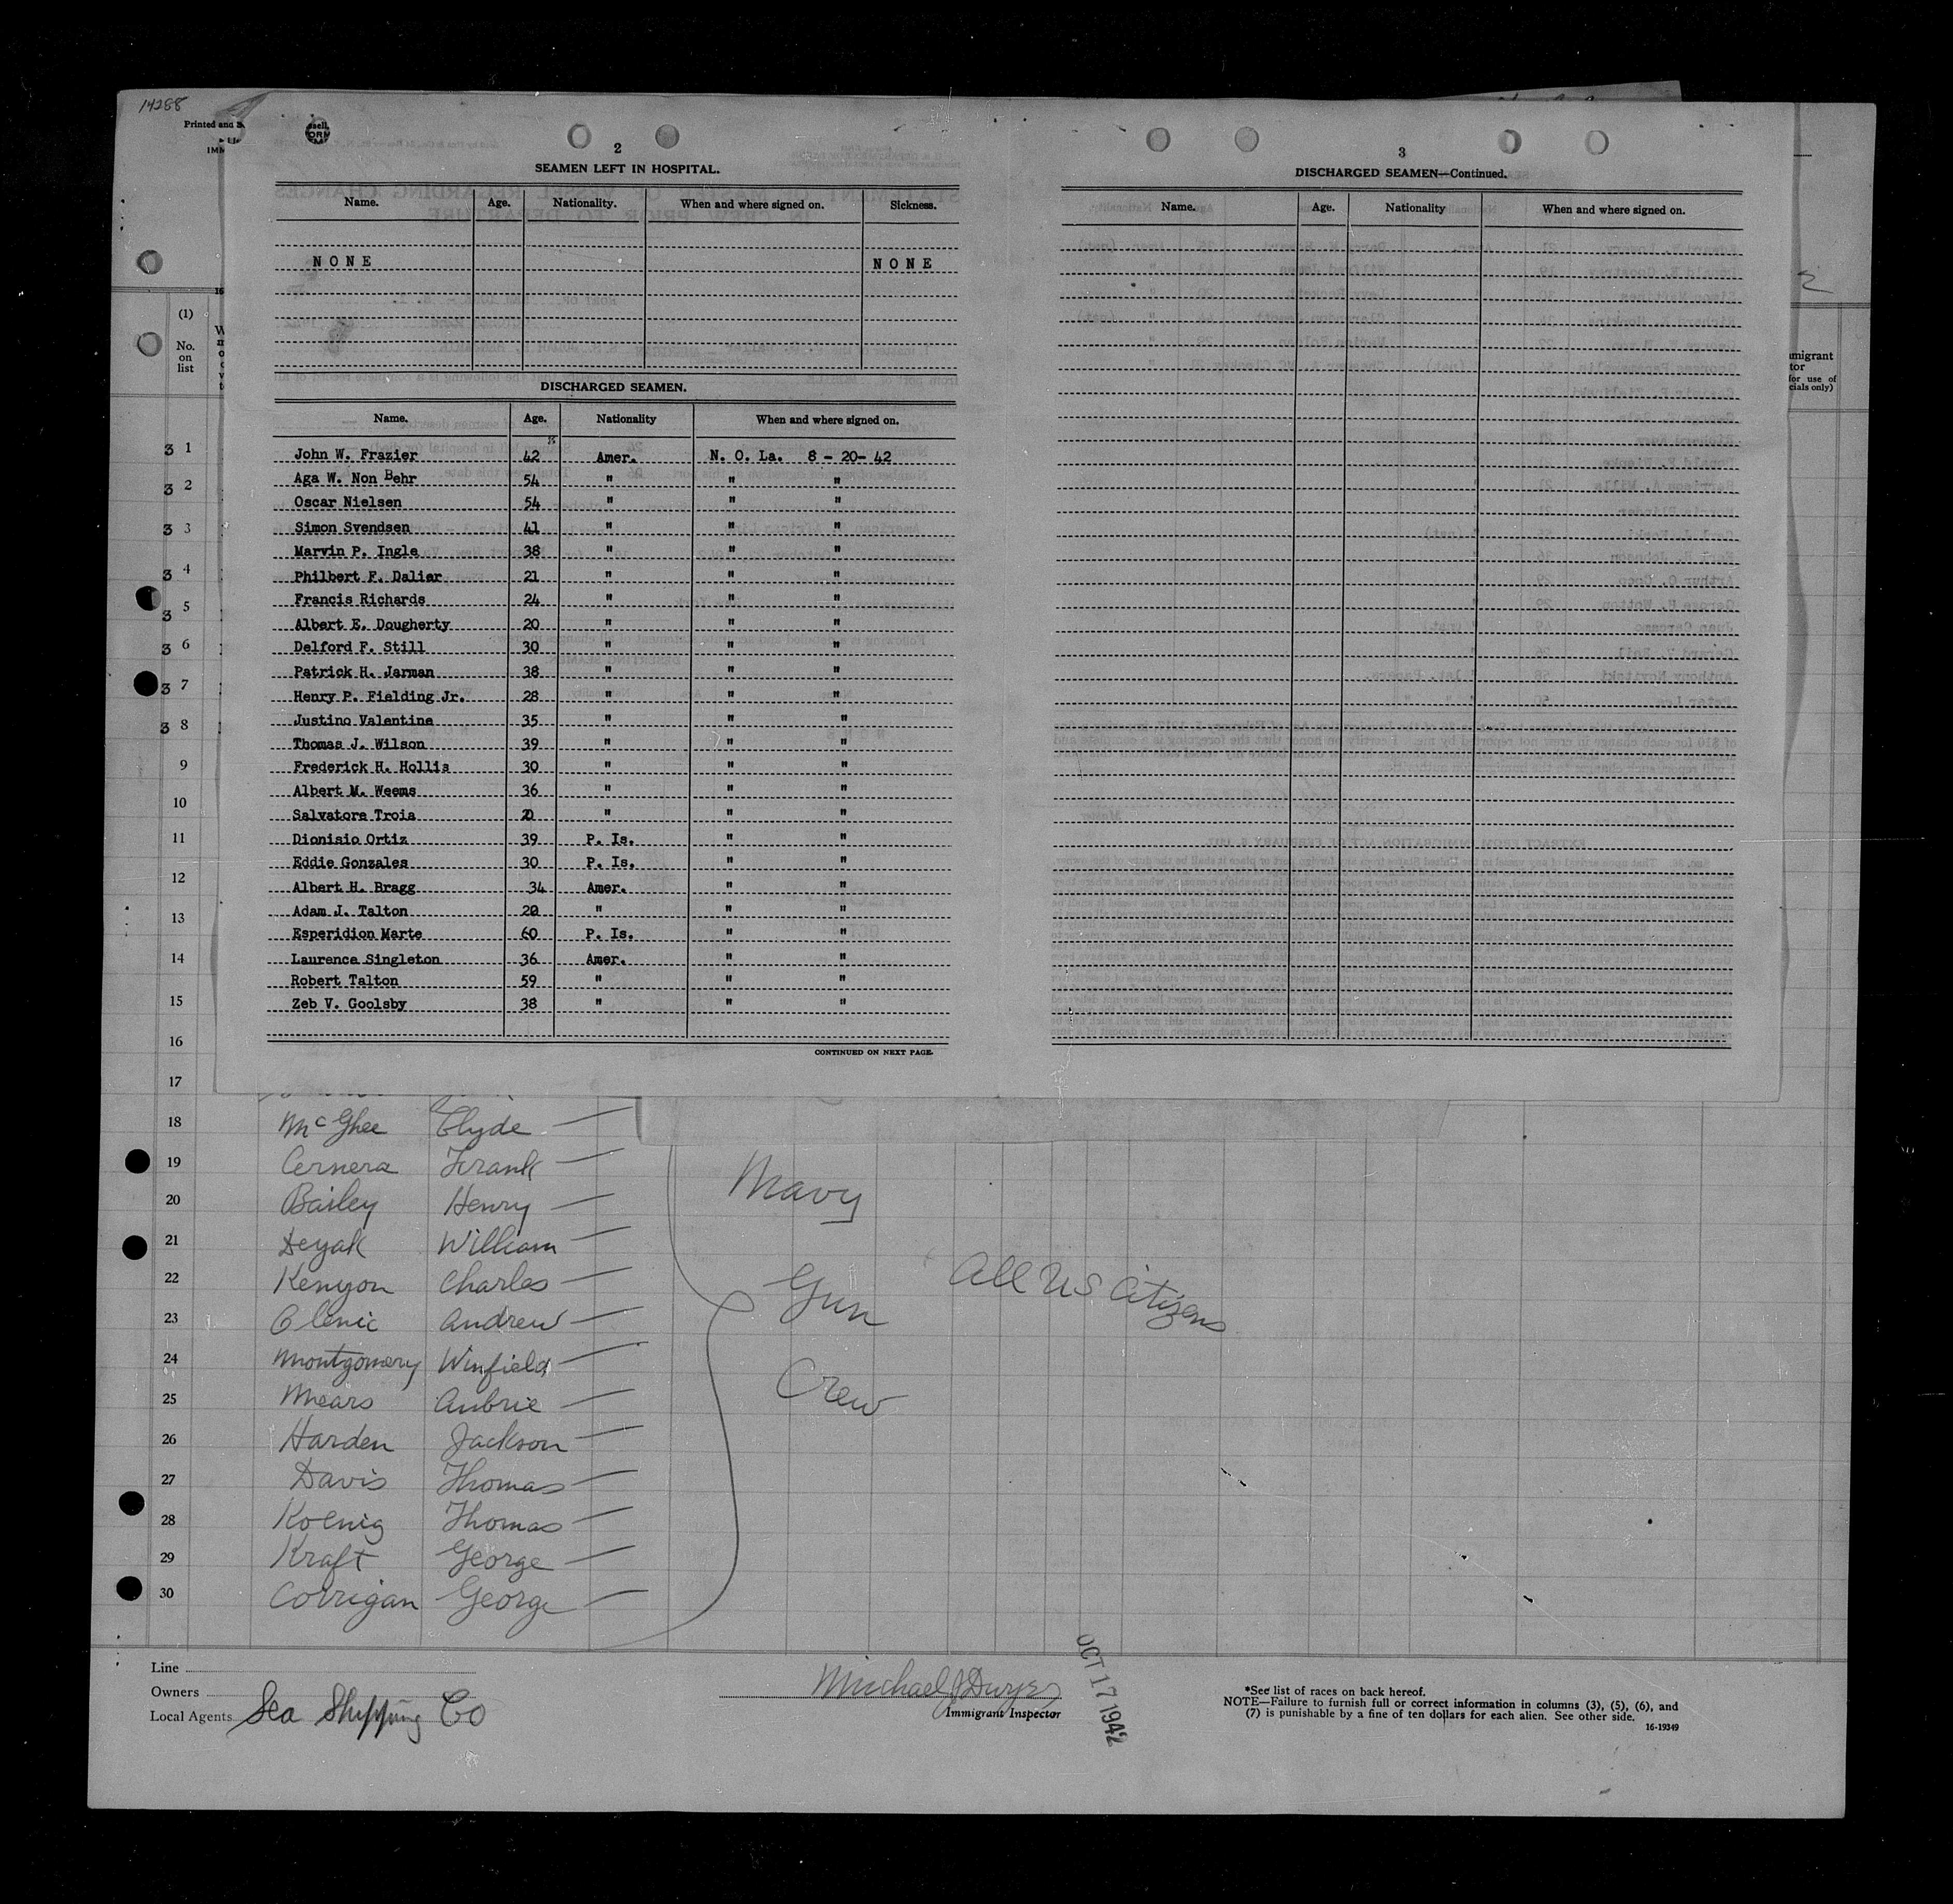 14288
Printed and S.
IMM
2
SEAMEN LEFT IN HOSPITAL.
Name. Age. Nationality. When and where signed on. Sickness.
NONE NONE
DISCHARGED SEAMEN.
Name. Age. Nationality When and where signed on.
John W. Frazier 42 Amer. N. O. La. 8 - 20- 42
Aga W. Non Behr 54 " " "
Oscar Nielsen 54 " " "
Simon Svendsen 41 " " "
Marvin P. Ingle 38 " " "
Philbert F. Daliar 21 " " "
Francis Richards 24 " " "
Albert E. Dougherty 20 " " "
Delford F. Still 30 " " "
Patrick H. Jarman 38 " " "
Henry P. Fielding Jr. 28 " " "
Justino Valentine 35 " " "
Thomas J. Wilson 39 " " "
Frederick H. Hollis 30 " " "
Albert M. Weems 36 " " "
Salvatore Trois 20 " " "
Dionisio Ortiz 39 P. Is. " "
Eddie Gonzales 30 P. Is. " "
Albert H. Bragg 34 Amer. " "
Adam J. Talton 20 " " "
Esperidion Marte 60 P. Is. " "
Laurence Singleton 36 Amer. " "
Robert Talton 59 " " "
Zeb V. Goolsby 38 " " "
CONTINUED ON NEXT PAGE.
3
DISCHARGED SEAMEN—Continued.
Name. Age. Nationality When and where signed on.
(1)
No.
on
list
3 1
3 2
3 3
3 4
3 5
3 6
3 7
3 8
9
10
11
12
13
14
15
16
17
18 McGhee Clyde —
19 Cernera Frank —
20 Bailey Henry —
21 Deyak William —
22 Kenyon Charles —
23 Olenic Andrew —
24 Montgomery Winfield —
25 Mears Aubrie —
26 Harden Jackson —
27 Davis Thomas —
28 Koenig Thomas —
29 Kraft George —
30 Corrigan George —
Navy
Gun
Crew
All US Citizens
Line
Owners
Local Agents Sea Shipping Co
Michael J Dwyer
Immigrant Inspector
OCT 17 1942
*See list of races on back hereof.
NOTE—Failure to furnish full or correct information in columns (3), (5), (6), and
(7) is punishable by a fine of ten dollars for each alien. See other side.
16-19349